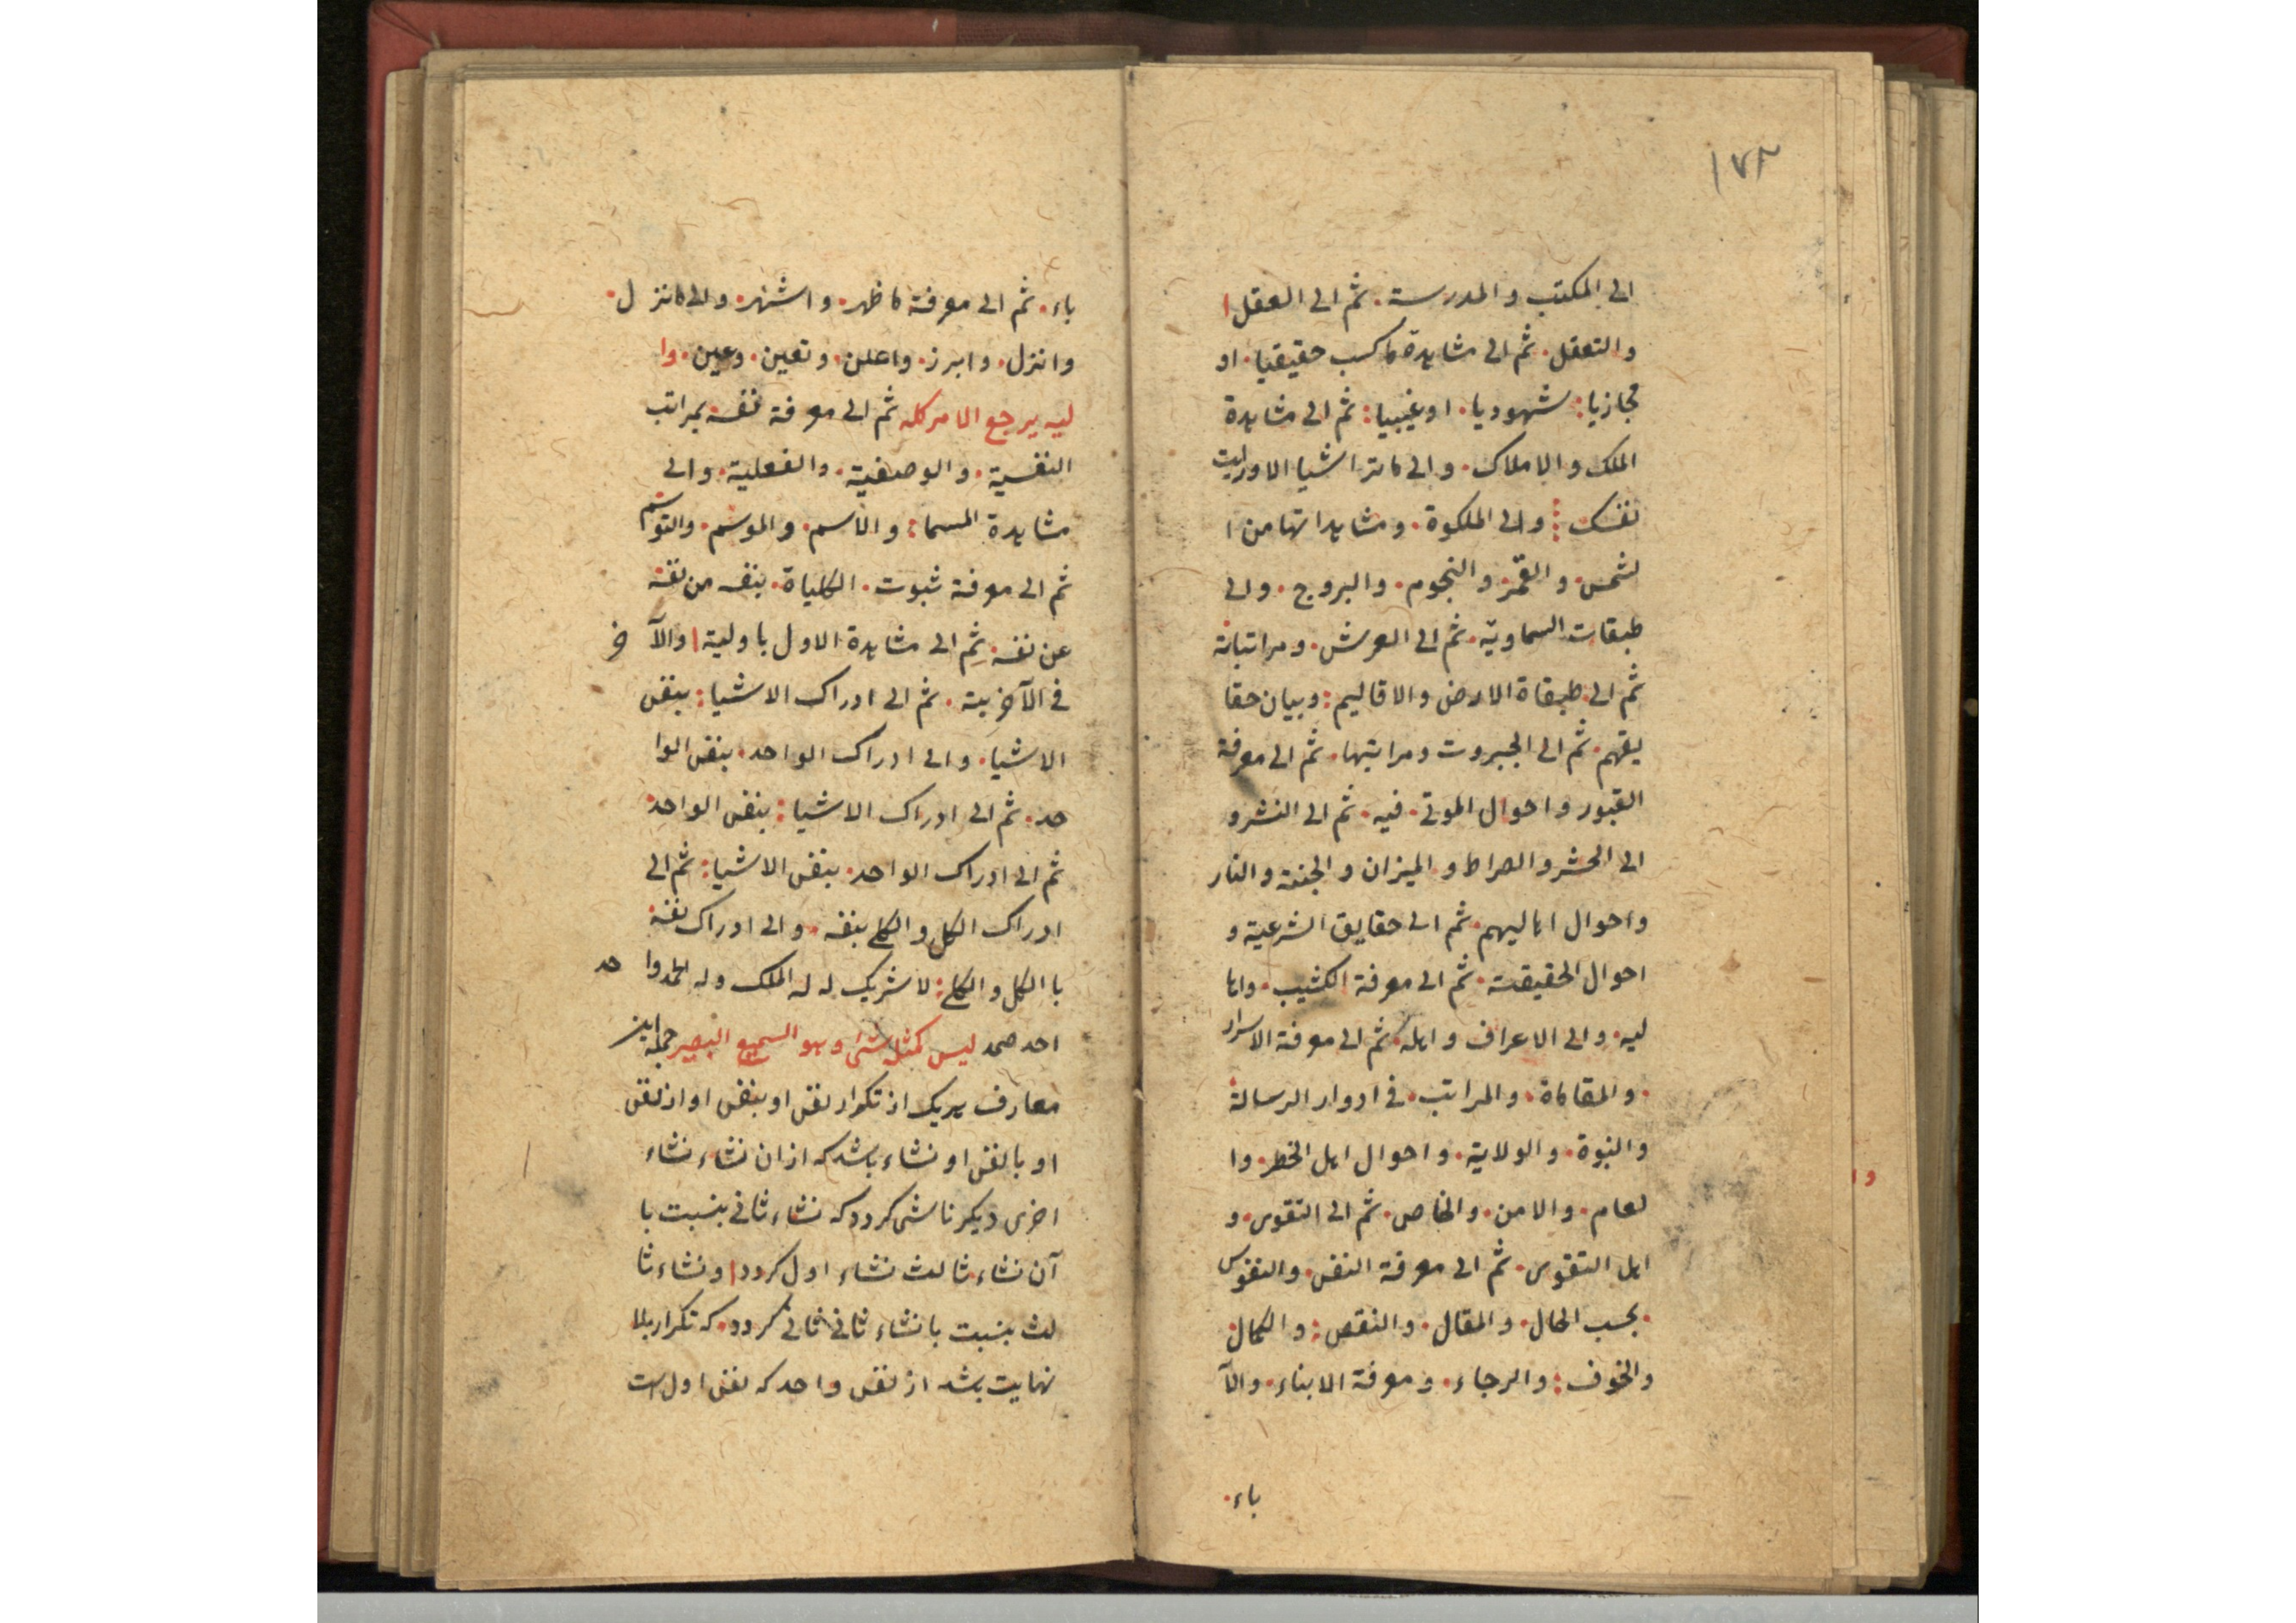 ١٧٢
الی المکتب و المدرسة. ثم الی العقل ا
و التعقل. ثم الی مشاهدة ماکسب حقیقیا. او
مجازیا: شهودیا. او غیبیا: ثم الی مشاهدة
الملک و الاملاک. و الی ما ترا اشیا الا ورایت
نفسک: و الی الملکوة. و مشاهداتها من ا
لشمس. و القمر. و النجوم. و البروج. و الی
طبقات السماویة. ثم الی العرش. و مراتباته
ثم الی طبقاة الارض والاقالیم: و بیان حقا
یقهم. ثم الی الجبروت و مراتبها. ثم الی معرفة
القبور و احوال الموتی. فیه. ثم الی النشر و
الی الحشر و الصراط و المیزان و الجنة و النار
و احوال اهالیهم. ثم الی حقایق الشرعیة و
احوال الحقیقة. ثم الی معرفة الکثیب. و اها
لیه. و الی الاعراف و اهله. ثم الی معرفة الاسرار
. و المقاماة. و المراتب. فی ادوار الرسالة
و النبوة. و الولایة. و احوال اهل الخطر. وا
لعام. و الامن. و الخاص. ثم الی التقوی. و
اهل التقوی. ثم الی معرفة النفس. و النفوس
. بحسب الحال. و المقال. و النقص: و الکمال
و الخوف: و الرجاء. و معرفة الابناء. و الآ
باء.
باء. ثم الی معرفة ما ظهر. و اشتهر. و الی ما نزل.
و انزل. و ابرز. و اعلن. و تعین. و عین. وا
لیه یرجع الامر کله ثم الی معرفة نفسه بمراتب
النفسیة. و الوصفیة. و الفعلیة. و الی
مشاهدة المسما: و الاسم. و الموسم. و التوسم
ثم الی معرفة ثبوت. الکلیاة. بنفسه من نفسه
عن نفسه. ثم الی مشاهدة الاول باولیة ا والآخ
فی الآخریته. ثم الی ادراک الاشیا: بنفس
الاشیا. و الی ادراک الواحد. بنفس الوا
حد. ثم الی ادراک الاشیا: بنفس الواحد
ثم الی ادراک الواحد. بنفس الاشیا: ثم الی
ادراک الکل و الکلی بنفسه. و الی ادراک نفسه
با الکل و الکلی: لا شریک له له الملک و له الحمد واحد
احد صمد لیس کمثله شئ و هو السمیع البصیر جمله این
معارف هریک از تکرار نفس او بنفس او از نفس
او با نفس او نشاء باشد که از ان نشاء نشاء
اخری دیکر ناشی کردد که نشاء ثانی بنسبت با
آن نشاء ثالث نشاء اول کردد ا و نشاء ثا
لث بنسبت با نشاء ثانی ثانی کردد. که تکرار بلا
نهایت باشد از نفس واحد که نفس اول است